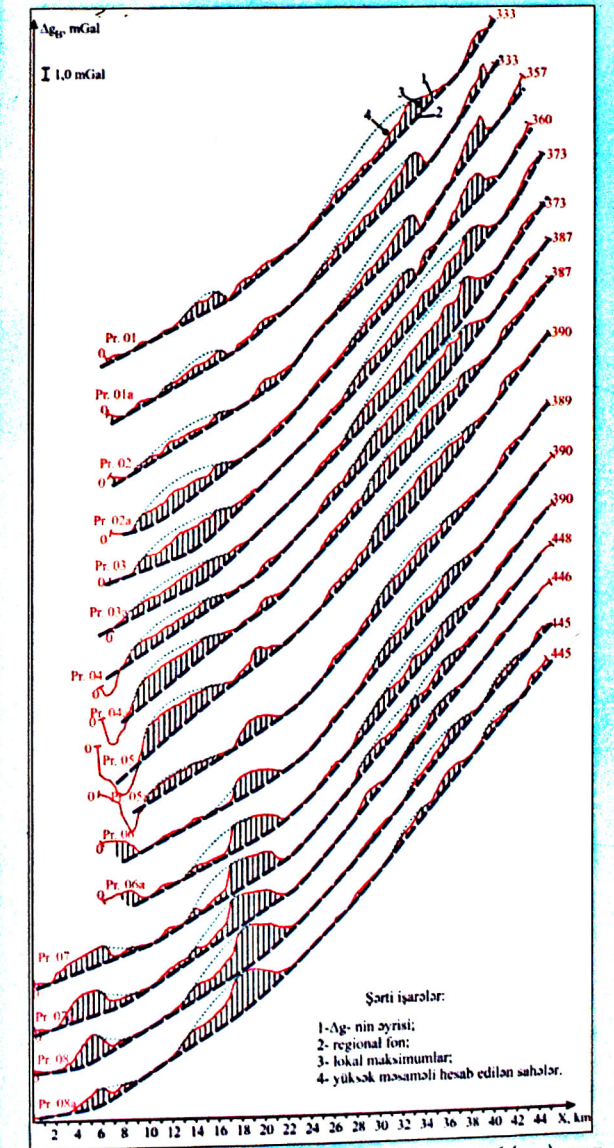 Δgн, mGal
1,0 mGal
333
333
357
360
373
373
387
387
390
389
390
390
448
446
445
445
1
3
4
2
Pr. 01
0
Pr. 01a
0
Pr. 02
0
Pr. 02a
0
Pr. 03
0
Pr. 03a
0
Pr. 04
0
Pr. 04
0
0
Pr. 05
0
Pr. 05
Pr. 06
0
Pr. 06a
0
Pr. 07
Pr. 07
Pr. 08
Pr. 08a
Şərti işarələr:
1-Δg- nin əyrisi;
2- regional fon;
3- lokal maksimumlar;
4- yüksək məsaməli hesab edilən sahələr.
2 4 6 8 10 12 14 16 18 20 22 24 26 28 30 32 34 36 38 40 42 44 X, km